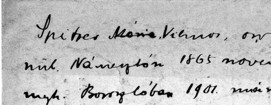 Spitzer Mária Vilmos, orv
szül. Námesztón 1865 novem
megh. Boroszlóban 1901. már